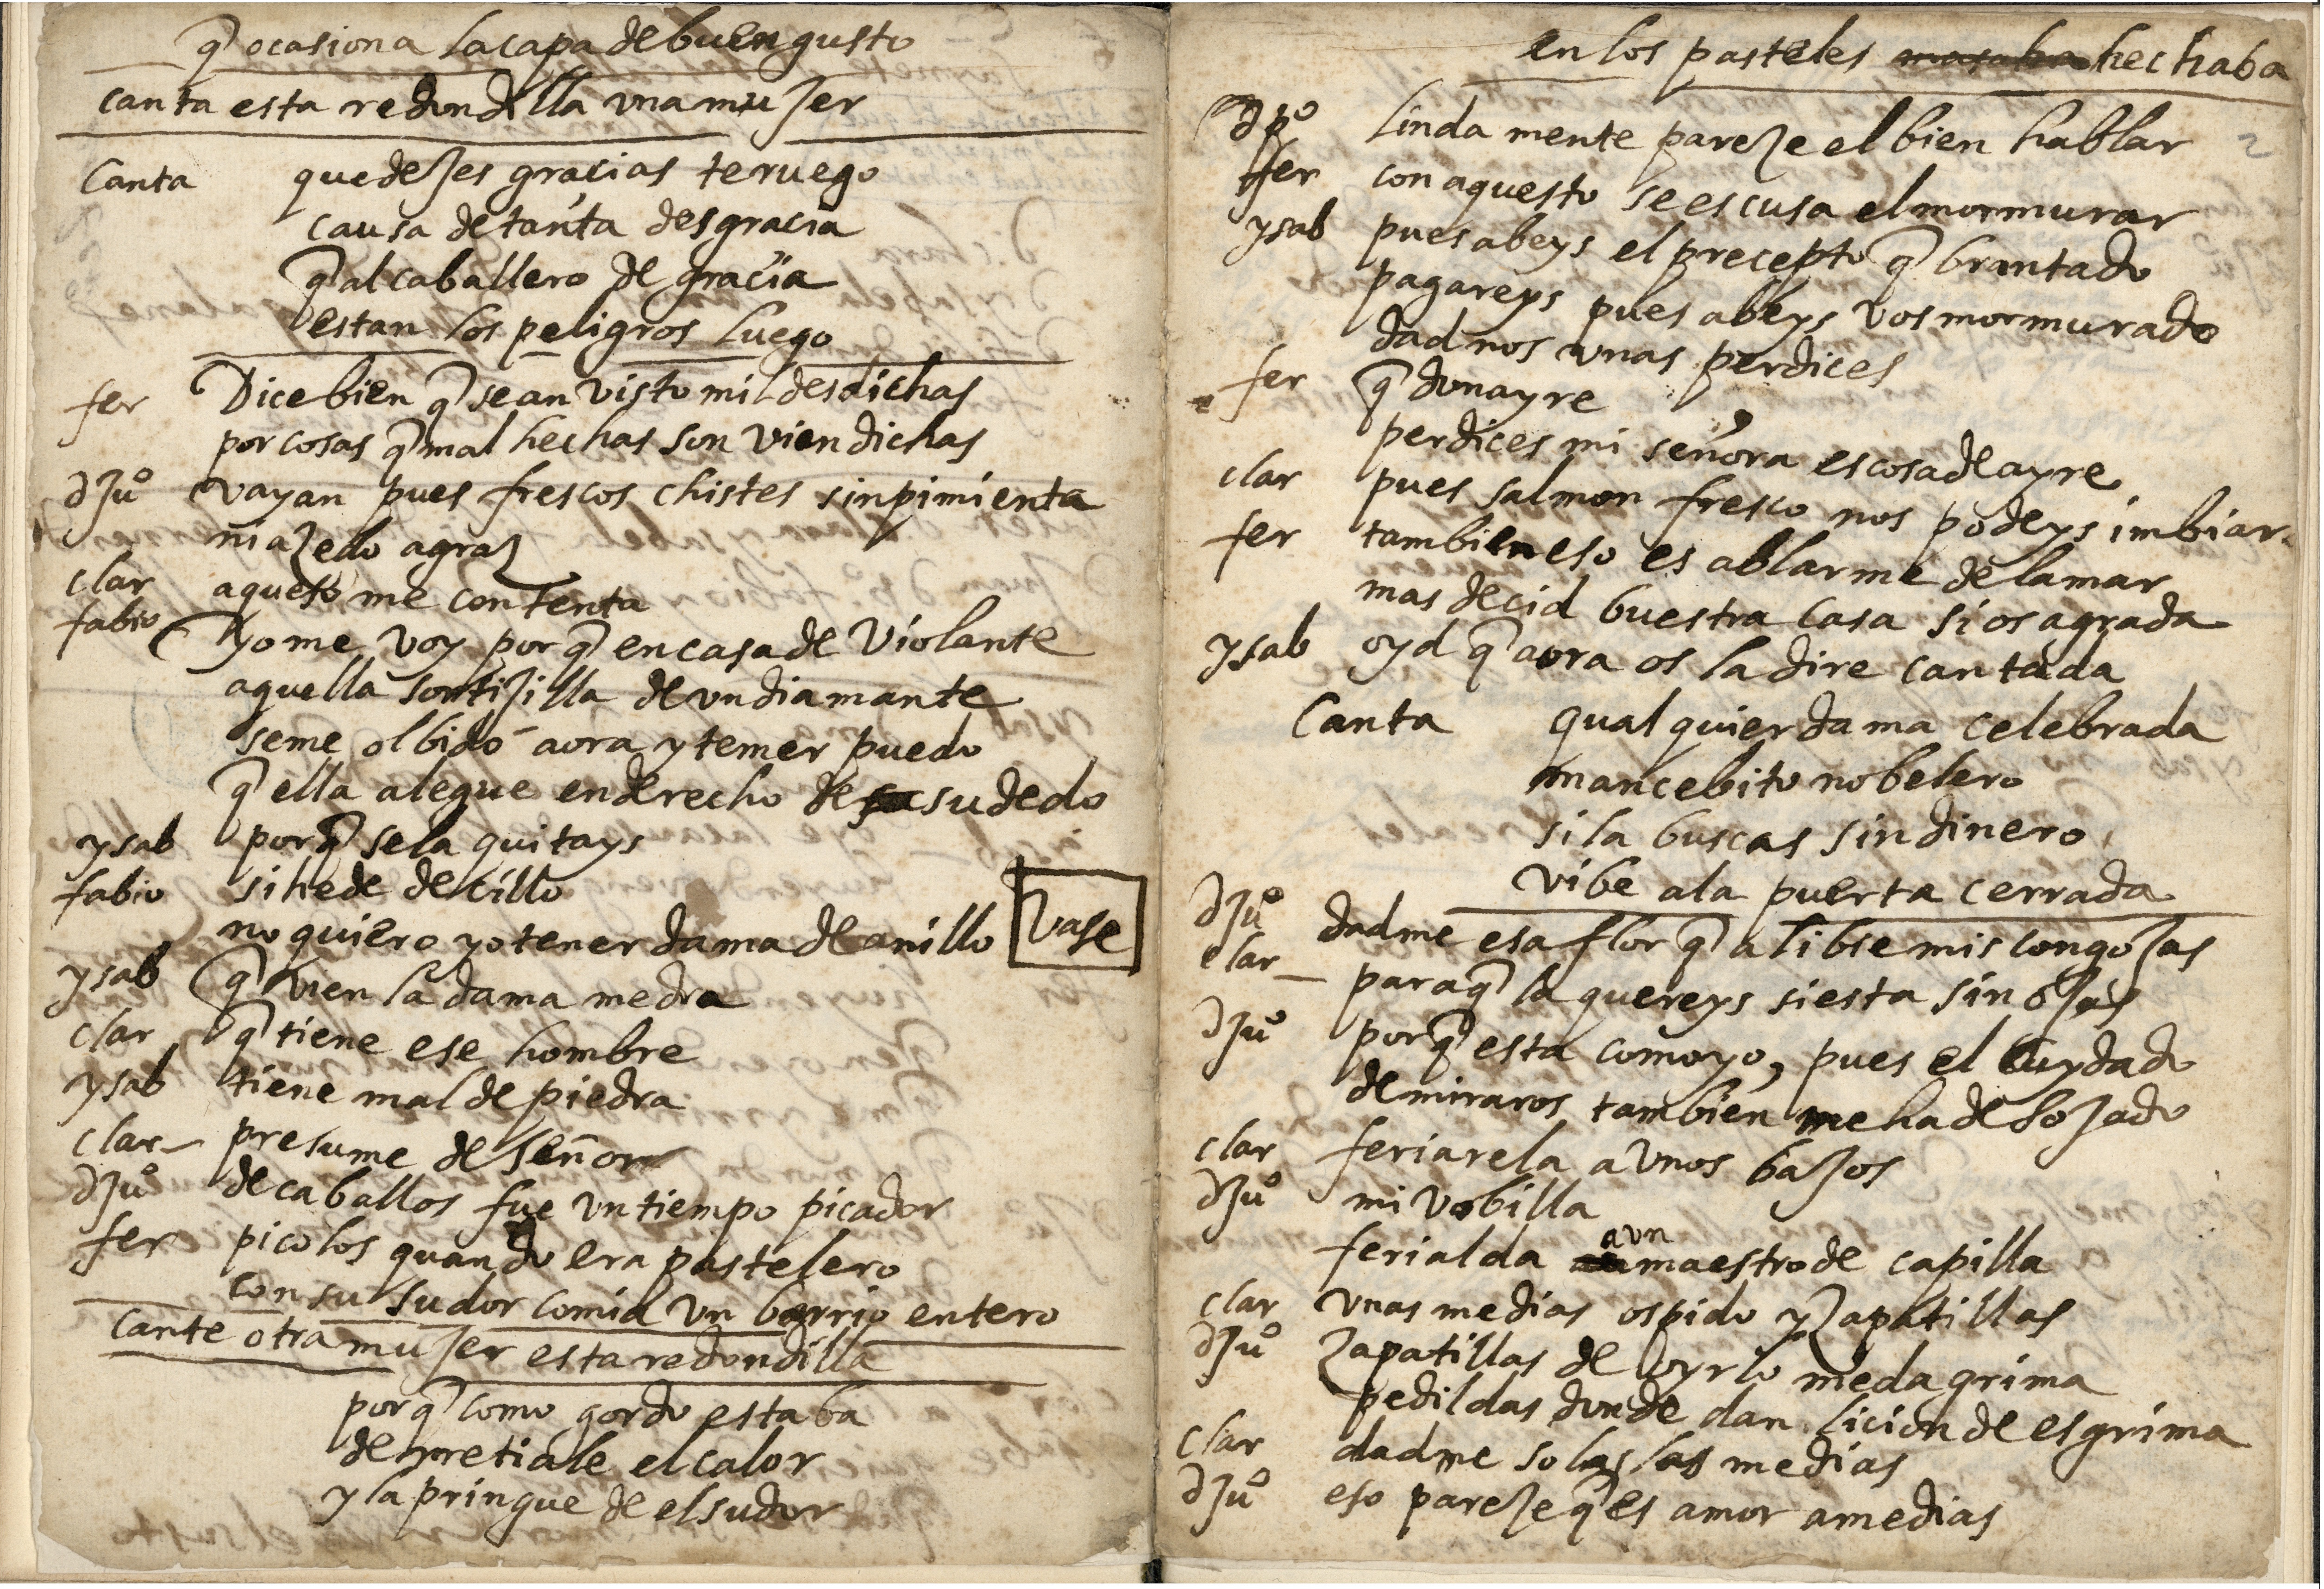 q̃ ocasiona la capa de buen gusto
canta esta redondilla vna mujer
Canta quedejes gracias te ruego
causa de tanta desgracia
q̃ al caballero de gracia
estan los peligros luego
fer Dice bien q̃ se an visto mil desdichas
por cosas q̃ mal hechas son vien dichas
dJuº vayan pues frescos chistes sin pimienta
ni azedo agraz
clar aquesto me contenta
fabio yo me voy por q̃ en casa de Violante
aquella sortijilla de vn diamante
se me olbidó aora y temer puedo
q̃ ella alegue en derecho de su dedo
ysab porq̃ se la quitays
fabio si he de decillo
no quiero yo tener dama de anillo vase
ysab q̃ vien la dama medra
clar q̃ tiene ese hombre
ysab tiene mal de piedra
clar presume de señor
dJuº de caballos fue vn tiempo picador
fer picolos quando era pastelero
con su sudor comia vn barrio entero
cante otra mujer esta redondilla
porq̃ como gordo estaba
derretiale el calor
y la pringue de el sudor
en los pasteles hechaba
2
dpº linda mente pareze el bien hablar
fer con aquesto se escusa el mormurar
ysab pues abeys el precepto q̃brantado
pagareys pues abeys vos mormurado
dad nos vnas perdices
fer q̃ donayre
perdices mi señora es cosa de ayre
clar pues salmon fresco nos podeys imbiar
fer tambien eso es ablarme de la mar
mas decid buestra casa si os agrada
ysab oyd q̃ aora os la dire cantada
Canta qualquier dama celebrada
mancebito nobelero
si la buscas sin dinero
vibe a la puerta cerrada
dJuº dadme esa flor q̃ alibie mis congojas
clar para q̃ la quereys si esta sin ojas
dJuº porq̃ esta como yo, pues el cuydado
de miraros tambien me ha desojado
clar feriarela a vnos bajos
dJuº mi vobilla
ferialda a vn maestro de capilla
clar vnas medias os pido y zapatillas
dJuº zapatillas de oyrlo me da grima
pedildas donde dan licion de esgrima
clar dadme solas las medias
dJuº eso pareze q̃ es amor a medias